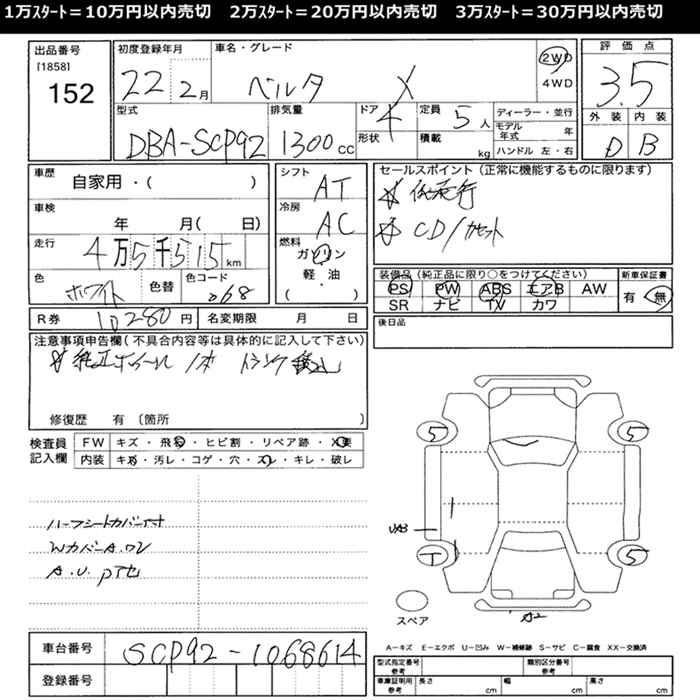 1万ｽﾀｰﾄ＝10万円以内売切　2万ｽﾀｰﾄ＝20万円以内売切　3万ｽﾀｰﾄ＝30万円以内売切
出品番号
[1858]
152
初度登録年月
22 2月
車名・グレード
ベルタ X
2WD
4WD
評価点
3.5
外装 内装
D B
型式
DBA-SCP92
排気量
1300cc
ドア 4
形状
定員 5人
積載 kg
ディーラー・並行
モデル年式 年
ハンドル 左・右
車歴
自家用・(　)
車検
年 月(　日)
走行
4万5千515km
色
ホワイト
色替
色コード
068
シフト
AT
冷房
AC
燃料
ガソリン
軽・油
(・)
セールスポイント（正常に機能するものに限ります）
低走行
CD/カセット
装備品（純正品に限り○をつけてください）
PS PW ABS エアB AW
SR ナビ TV カワ
新車保証書
有・無
後日品
R券 10280円
名変期限 月 日
注意事項申告欄（不具合内容等は具体的に記入して下さい）
純正ホイール 1本 トランク
修復歴 有〔箇所
検査員
記入欄
FW キズ・飛石・ヒビ割・リペア跡・X要
内装 キズ・汚レ・コゲ・穴・スレ・キレ・破レ
ハーフシートカバー付
WカバーA.U2V
A.U.P下他
5 5
T 5
スペア
A2
A－キズ E－エクボ U－凹み W－補修跡 S－サビ C－腐食 XX－交換済
車台番号
SCP92-1068614
登録番号
型式指定番号
参考
類別区分番号
参考
車庫証明用
参考
長さ cm
幅 cm
高さ cm